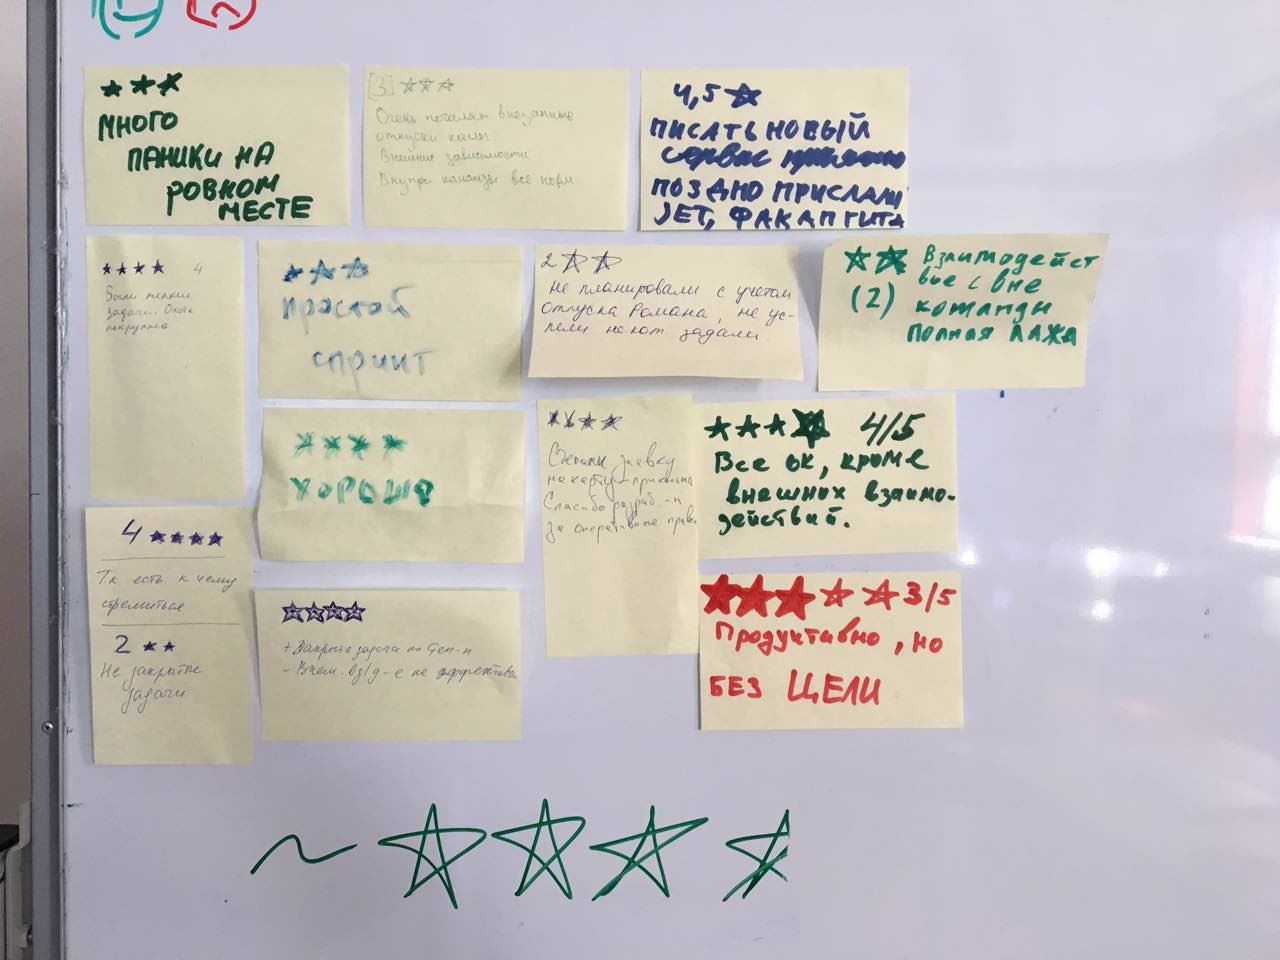 МНОГО
ПАНИКИ НА
РОВНОМ
МЕСТЕ
[3]
Очень повлиял внезапные
отпуски
Внешние зависимости
Внутри команды все норм
4,5
ПИСАТЬ НОВЫЙ
сервис приятно
ПОЗДНО ПРИСЛАЛИ
JET, ФАКАП ГИТА
4
Были мелкие
задачи.. Около
простой
спринт
2
Не планировали с учетом
отпуска Романа, не ус-
пели некот. задачи.
Взаимодейст
(2) вие с вне
команды
полная ЛАЖА
хорошо
заявку
на карту - прикольно
Спасибо разраб.-м
за оперативные прав
4/5
Все ок, кроме
внешних взаимо-
действий.
4
Т.к есть к чему
стремиться
2
Не закрытые
задачи
+ Закрыта задача по
- Внеш. вз/д-е не эффективн
3/5
Продуктивно, но
БЕЗ ЦЕЛИ
~